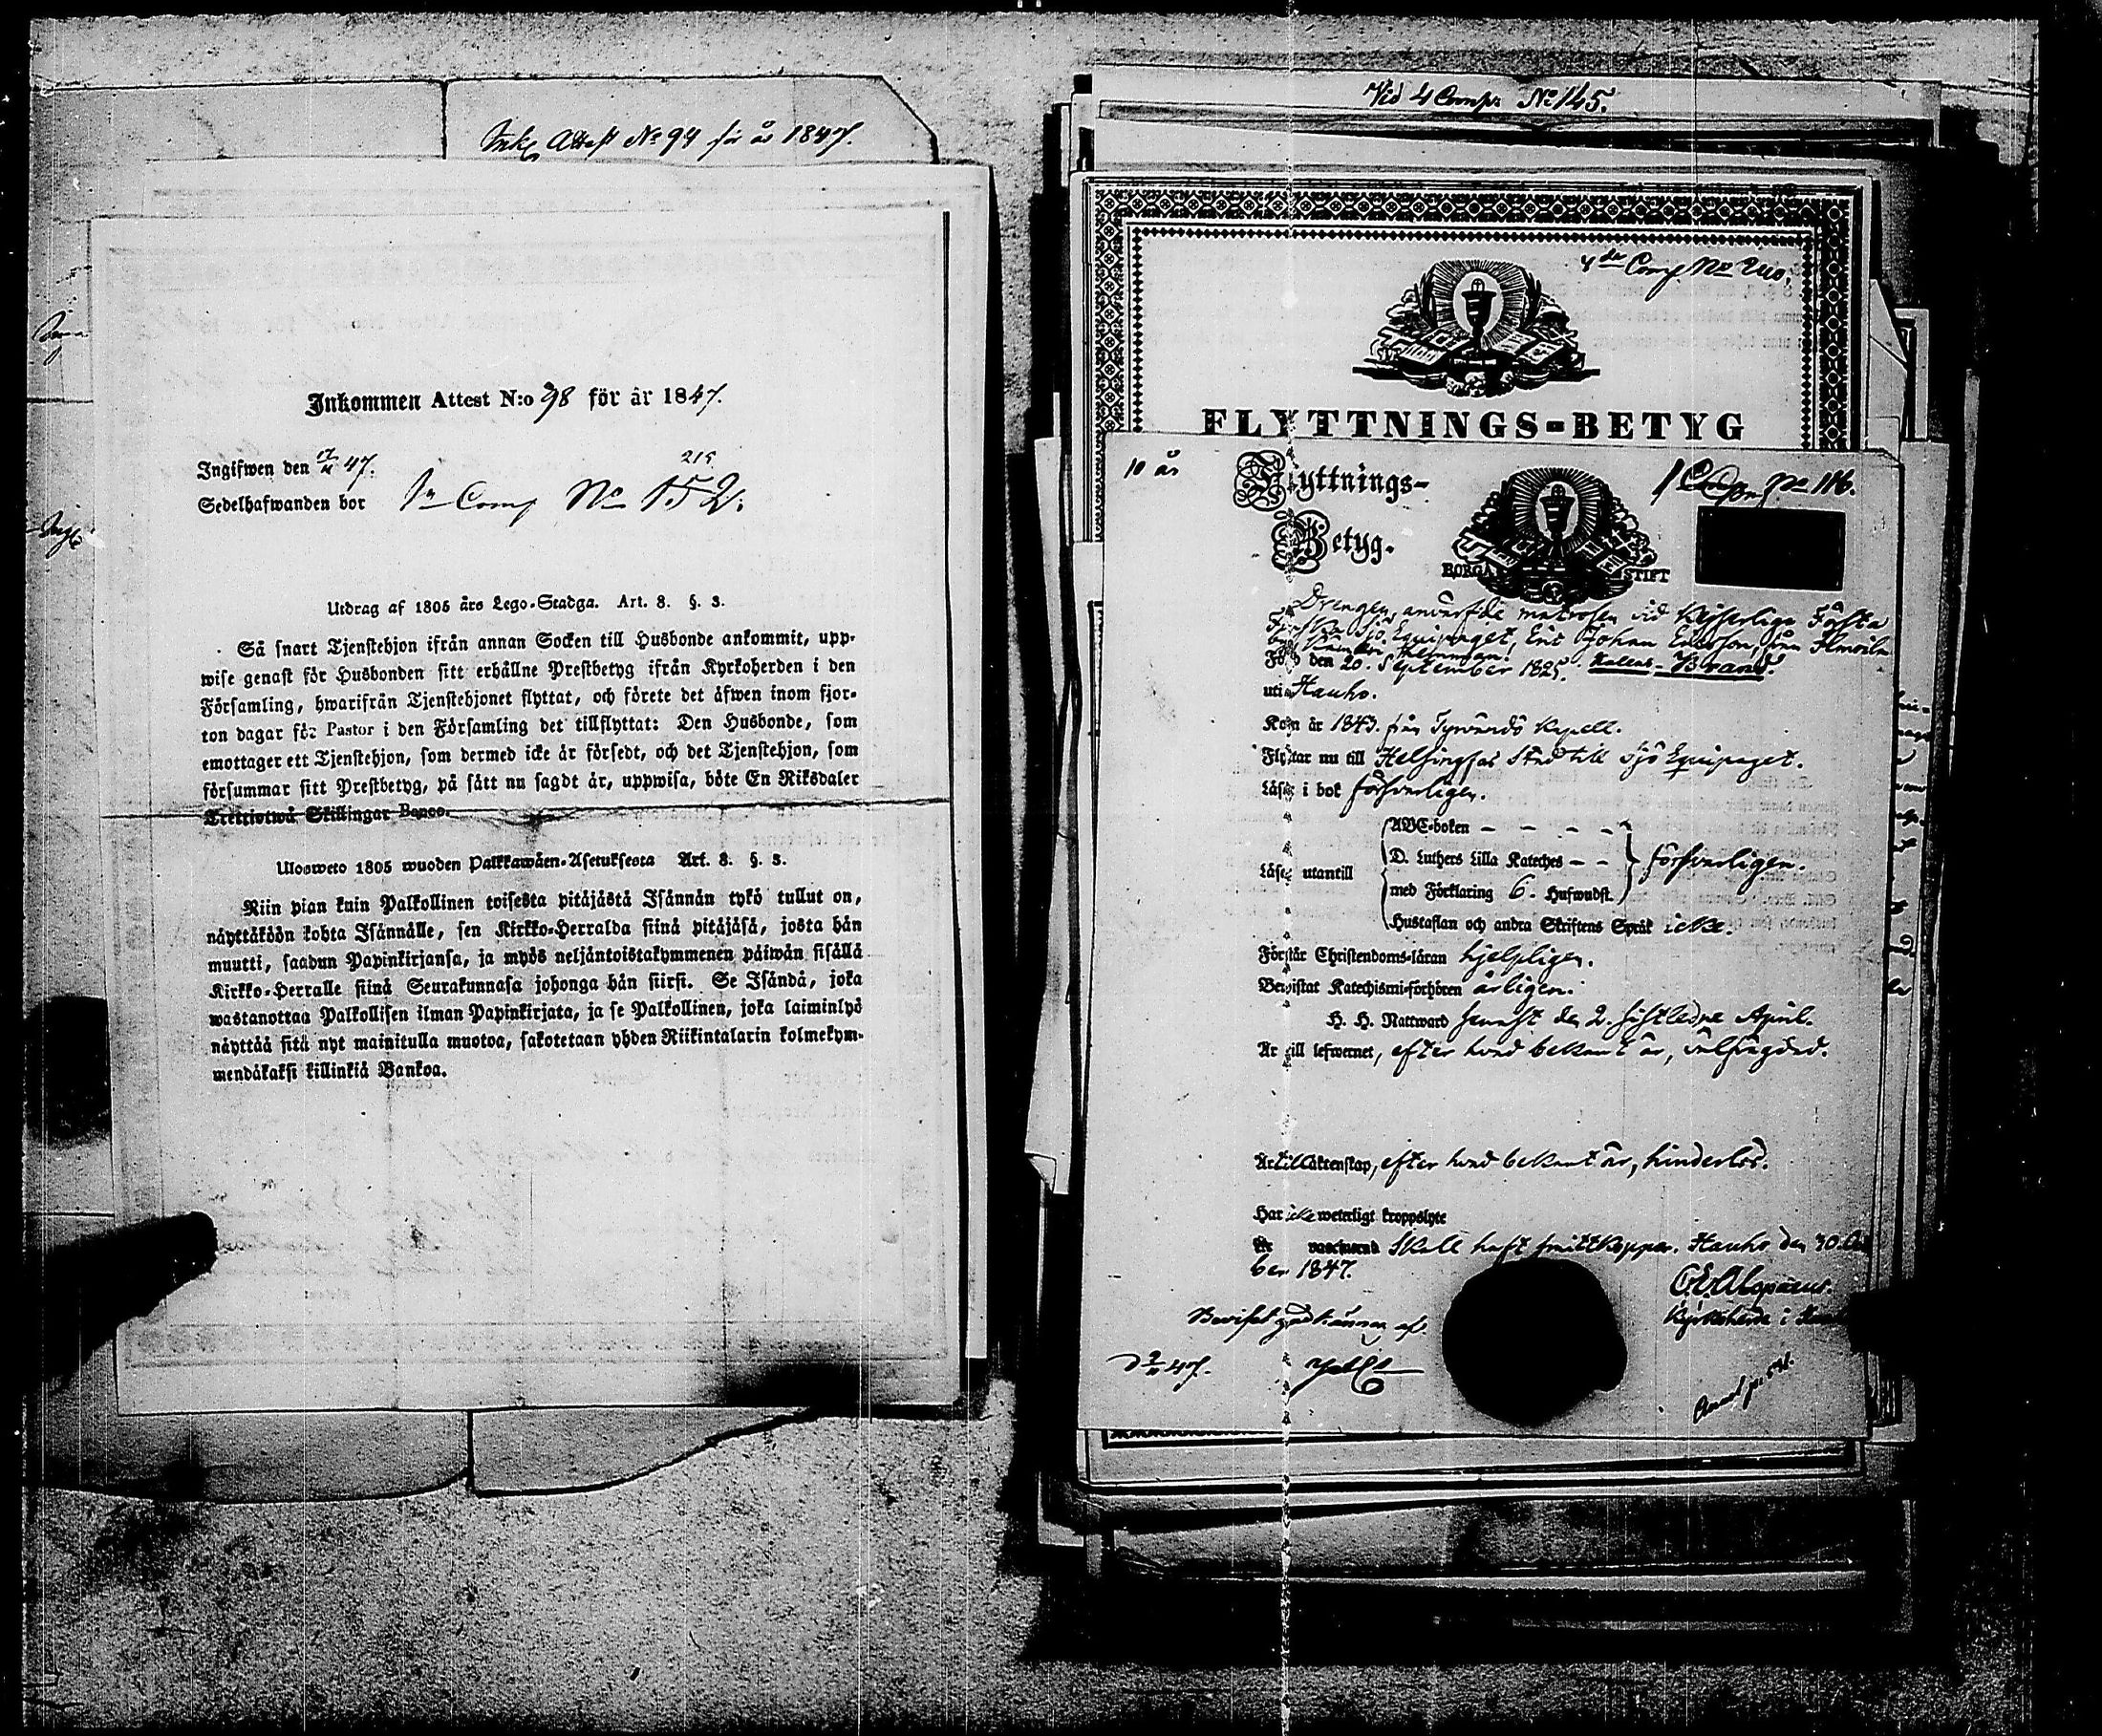 Attest No 94 för år 1847.
Inkommen Attest N:o 98 för år 1847.
Ingifwen den 17/11 47.
215
Sedelhafwanden bor 1a Comp No 152.
Utdrag af 1805 års Lego-Stadga. Art. 8. §. 3.
Så snart Tjenstehjon ifrån annan Socken till Husbonde ankommit, upp-
wise genast för Husbonden sitt erhållne Prestbetyg ifrån Kyrkoherden i den
Församling, hwarifrån Tjenstehjonet flyttat, och förete det äfwen inom fjor-
ton dagar för Pastor i den Församling det tillflyttat: Den Husbonde, som
emottager ett Tjenstehjon, som dermed icke är försedt, och det Tjenstehjon, som
försummar sitt Prestbetyg, på sätt nu sagdt är, uppwisa, böte En Riksdaler
Trettiotwå Skillingar Banco.
Ulosweto 1805 wuoden Palkkawäen-Asetuksesta Art. 8. §. 3.
Niin pian kuin Palkollinen toisesta pitäjästä Isännän tykö tullut on,
näyttäköön kohta Isännälle, sen Kirkko-Herralda siinä pitäjäsä, josta hän
muutti, saadun Papinkirjansa, ja myös neljäntoistakymmenen päiwän sisällä
Kirkko-Herralle siinä Seurakunnasa johonga hän siirsi. Se Isändä, joka
wastanottaa Palkollisen ilman Papinkirjata, ja se Palkollinen, joka laiminlyö
näyttää sitä nyt mainitulla muotoa, sakotetaan yhden Riikintalarin kolmekym-
mendäkaksi killinkiä Bankoa.
Vid 4 Comp: No 145.
4de Comp No
FLYTTNINGS-BETYG
10 år
Flyttnings-
1 Comp No 116.
Betyg.
BORGÅ STIFT
Drengen, antagne matrosen vid Kejserliga Första
Sjö Equipaget, Johan
Född den 20. September 1825. Brand.
uti Hauho.
Kom år 1843. från Tyrvändö Kapell.
Flyttar nu till Helsingfors Stad till Sjö Equipaget.
Läser i bok försvarligen.
ABC-boken
D. Luthers Lilla Kateches
Läser utantill försvarligen.
med Förklaring 6. Hufwudst.
Hustaflan och andra Skriftens Språk icke.
Förstår Christendoms-läran hjelpligen.
Bewistat Katechismi-förhören årligen.
H. H. Nattward senast den 2. sistledne April.
Är till lefwernet, efter hvad bekant är, välfrägdad.
Är till äktenskap, efter hvad bekant är, hinderlös.
Har icke weterligt kroppslyte
Är vaccinerad Skall haft smittkoppor. Hauho den 30
ber 1847.
C. E. Alopaeus.
Kyrkoherde i